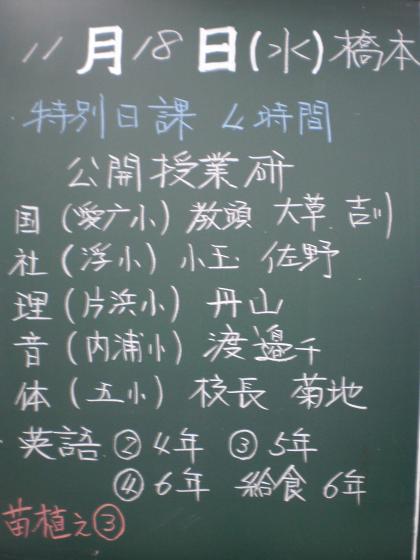 11月18日(水)橋本
特別日課 4時間
公開授業研
国(愛六小)教頭 大草 吉川
社(浮小)小玉 佐野
理(片浜小)丹山
音(内浦小)渡邉千
体(五小)校長 菊地
英語②4年 ③5年
④6年 給食 6年
苗植え③